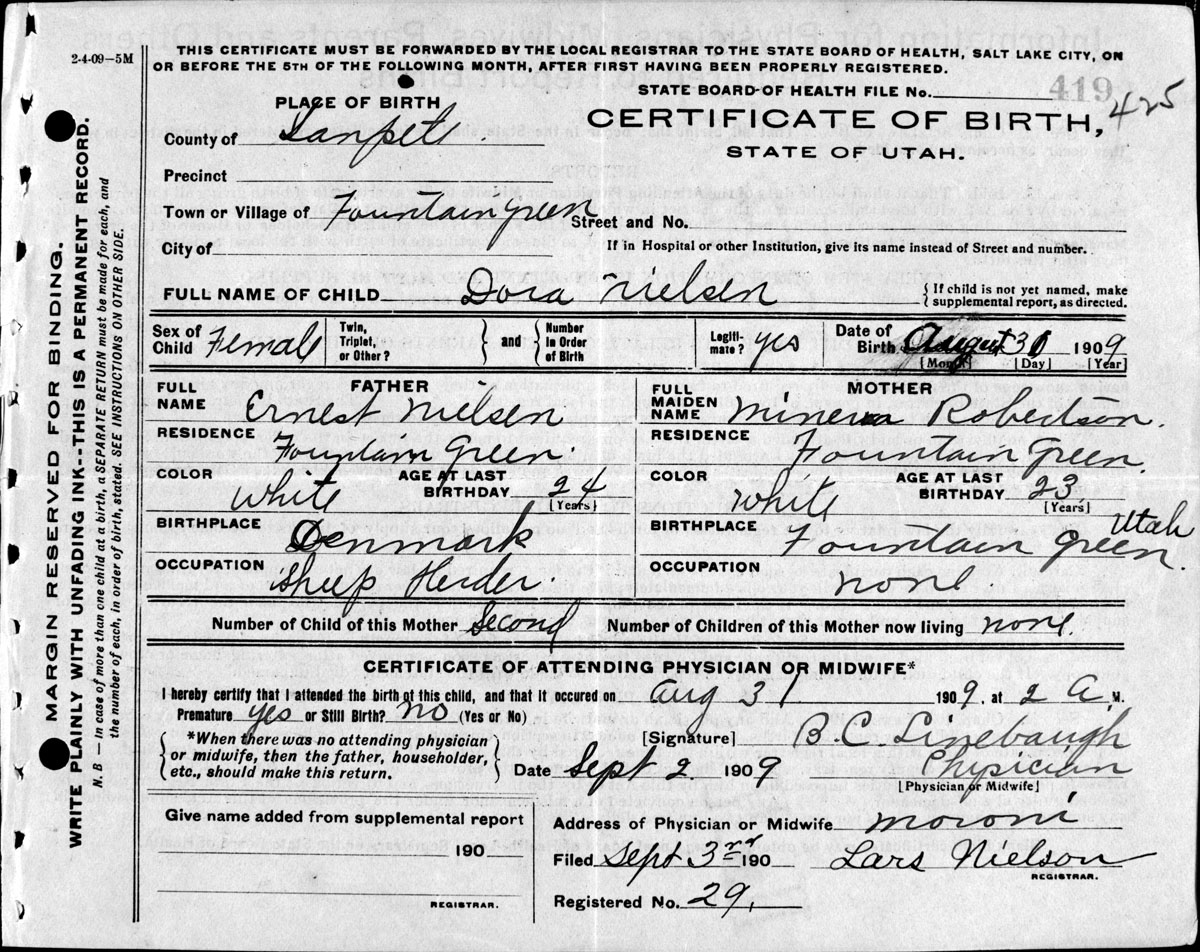 2-4-09-5M
THIS CERTIFICATE MUST BE FORWARDED BY THE LOCAL REGISTRAR TO THE STATE BOARD OF HEALTH, SALT LAKE CITY, ON
OR BEFORE THE 5TH OF THE FOLLOWING MONTH, AFTER FIRST HAVING BEEN PROPERLY REGISTERED.
STATE BOARD OF HEALTH FILE No. 419 425
PLACE OF BIRTH
CERTIFICATE OF BIRTH,
County of Sanpete
STATE OF UTAH.
Precinct
Town or Village of Fountain green Street and No.
City of If in Hospital or other Institution, give its name instead of Street and number.
FULL NAME OF CHILD Dora Nielsen { If child is not yet named, make
supplemental report, as directed.
Sex of Child Female Twin, Triplet, or Other? } and { Number In Order of Birth Legiti-mate? yes Date of Birth August 31 1909
[Month] [Day] [Year]
MARGIN RESERVED FOR BINDING.
WRITE PLAINLY WITH UNFADING INK--THIS IS A PERMANENT RECORD.
N. B — In case of more than one child at a birth, a SEPARATE RETURN must be made for each, and
the number of each, in order of birth, stated. SEE INSTRUCTIONS ON OTHER SIDE.
FATHER
FULL NAME Ernest Nielsen
RESIDENCE Fountain Green.
COLOR White AGE AT LAST BIRTHDAY 24
[Years]
BIRTHPLACE Denmark
OCCUPATION Sheep Herder.
MOTHER
FULL MAIDEN NAME Minerva Robertson.
RESIDENCE Fountain Green.
COLOR White AGE AT LAST BIRTHDAY 23
[Years]
BIRTHPLACE Fountain Green. Utah
OCCUPATION none.
Number of Child of this Mother Second Number of Children of this Mother now living none.
CERTIFICATE OF ATTENDING PHYSICIAN OR MIDWIFE*
I hereby certify that I attended the birth of this child, and that it occured on Aug 31 1909, at 2 A. M.
Premature yes or Still Birth? no (Yes or No)
{ *When there was no attending physician
or midwife, then the father, householder,
etc., should make this return. }
[Signature] B. C. Linebaugh
Physician
Date Sept 2. 1909
[Physician or Midwife]
Give name added from supplemental report
190
REGISTRAR.
Address of Physician or Midwife Moroni
Filed Sept 3rd 190 Lars Nielson
REGISTRAR.
Registered No. 29.